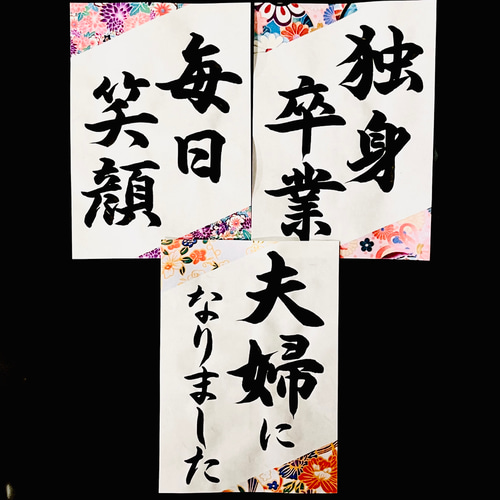 独身
卒業
毎日
笑顔
夫婦に
なりました